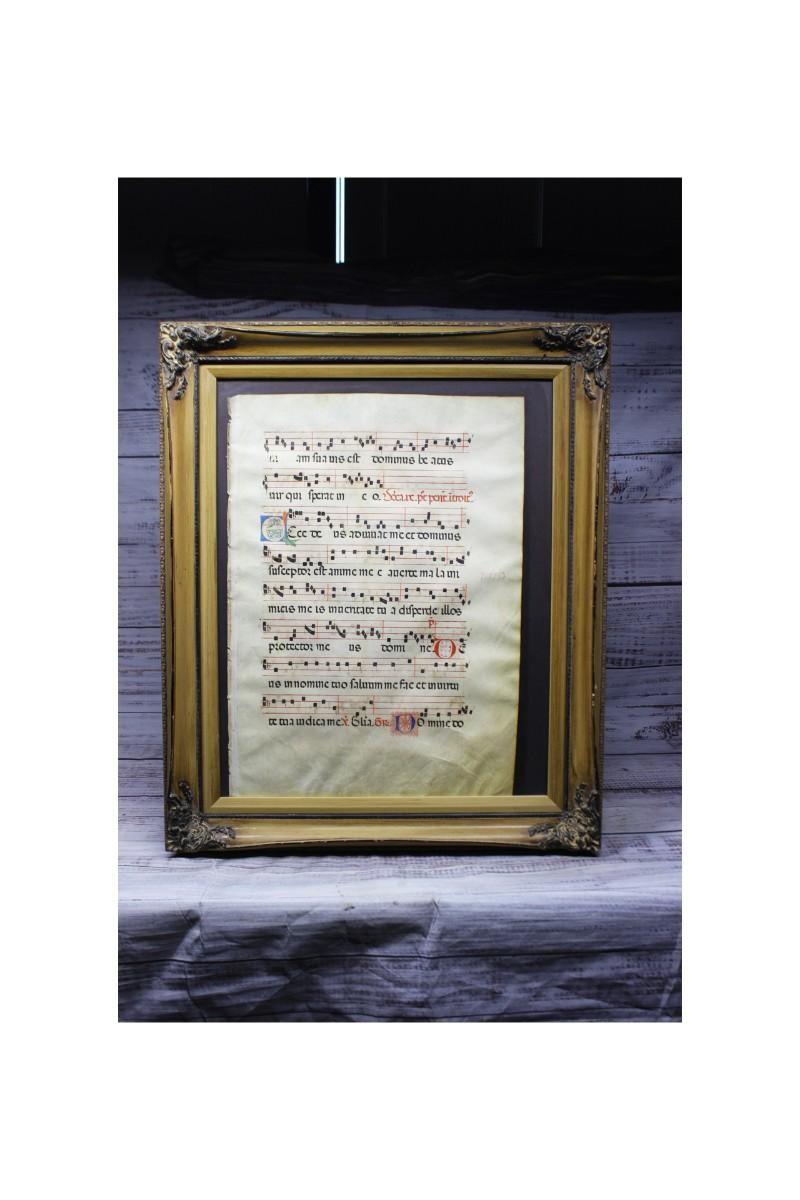 am sua uis est dominus be atus
uir qui sperat in e o.
Ecce de us adiuuat me et dominus
susceptor est anime me e auerte ma la in
micis me is in ueritate tu a disperde illos
protector me us domi ne. De
us in nomine tuo saluum me fac et in uirtu
te tua iudica me. Glia. Domine do